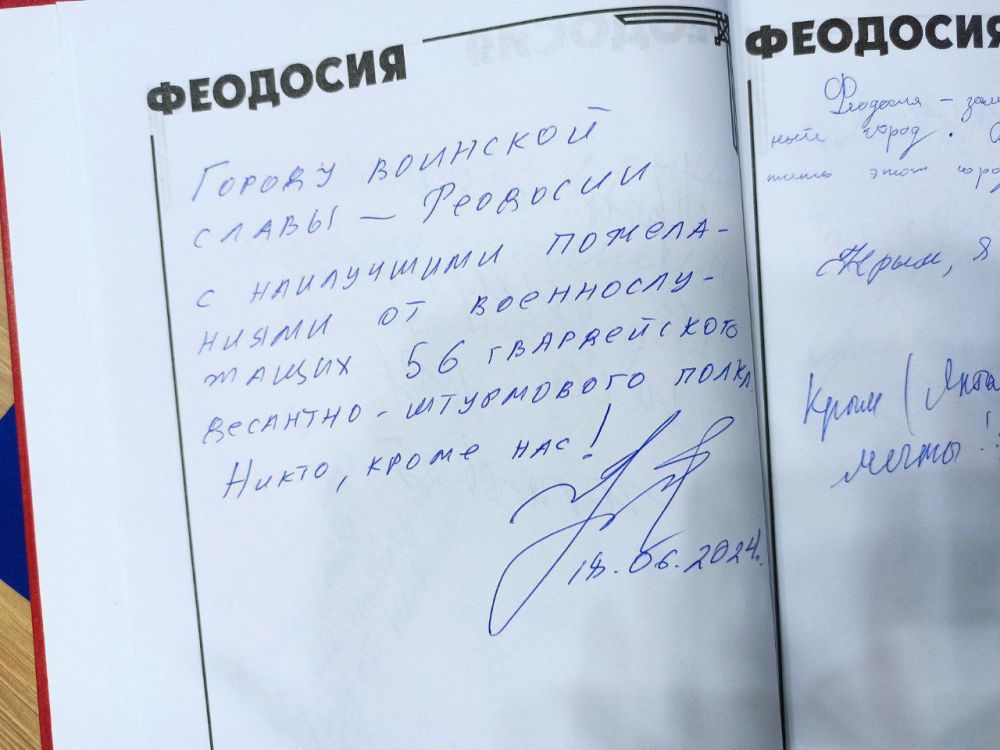 ФЕОДОСИЯ
Городу воинской
славы – Феодосии
с наилучшими пожела-
ниями от военнослу-
жащих 56 гвардейского
десантно-штурмового полка
Никто, кроме нас!
18.06.2024г.
ФЕОДОСИЯ
Феодосия –
город.
этот
Крым, я
Крым (
мечты!